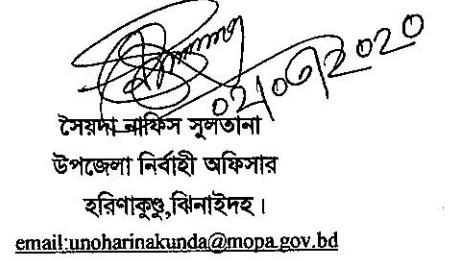 ০২/০৩/২০২০
সৈয়দা নাফিস সুলতানা
উপজেলা নির্বাহী অফিসার
হরিণাকুণ্ডু,ঝিনাইদহ।
email:unoharinakunda@mopa.gov.bd